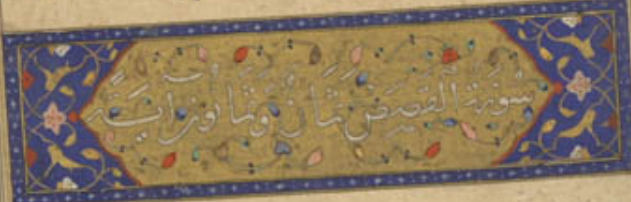 سُورَةُ القَصَصِ ثَمَانٌ وَثَمَانُونَ آيَةً